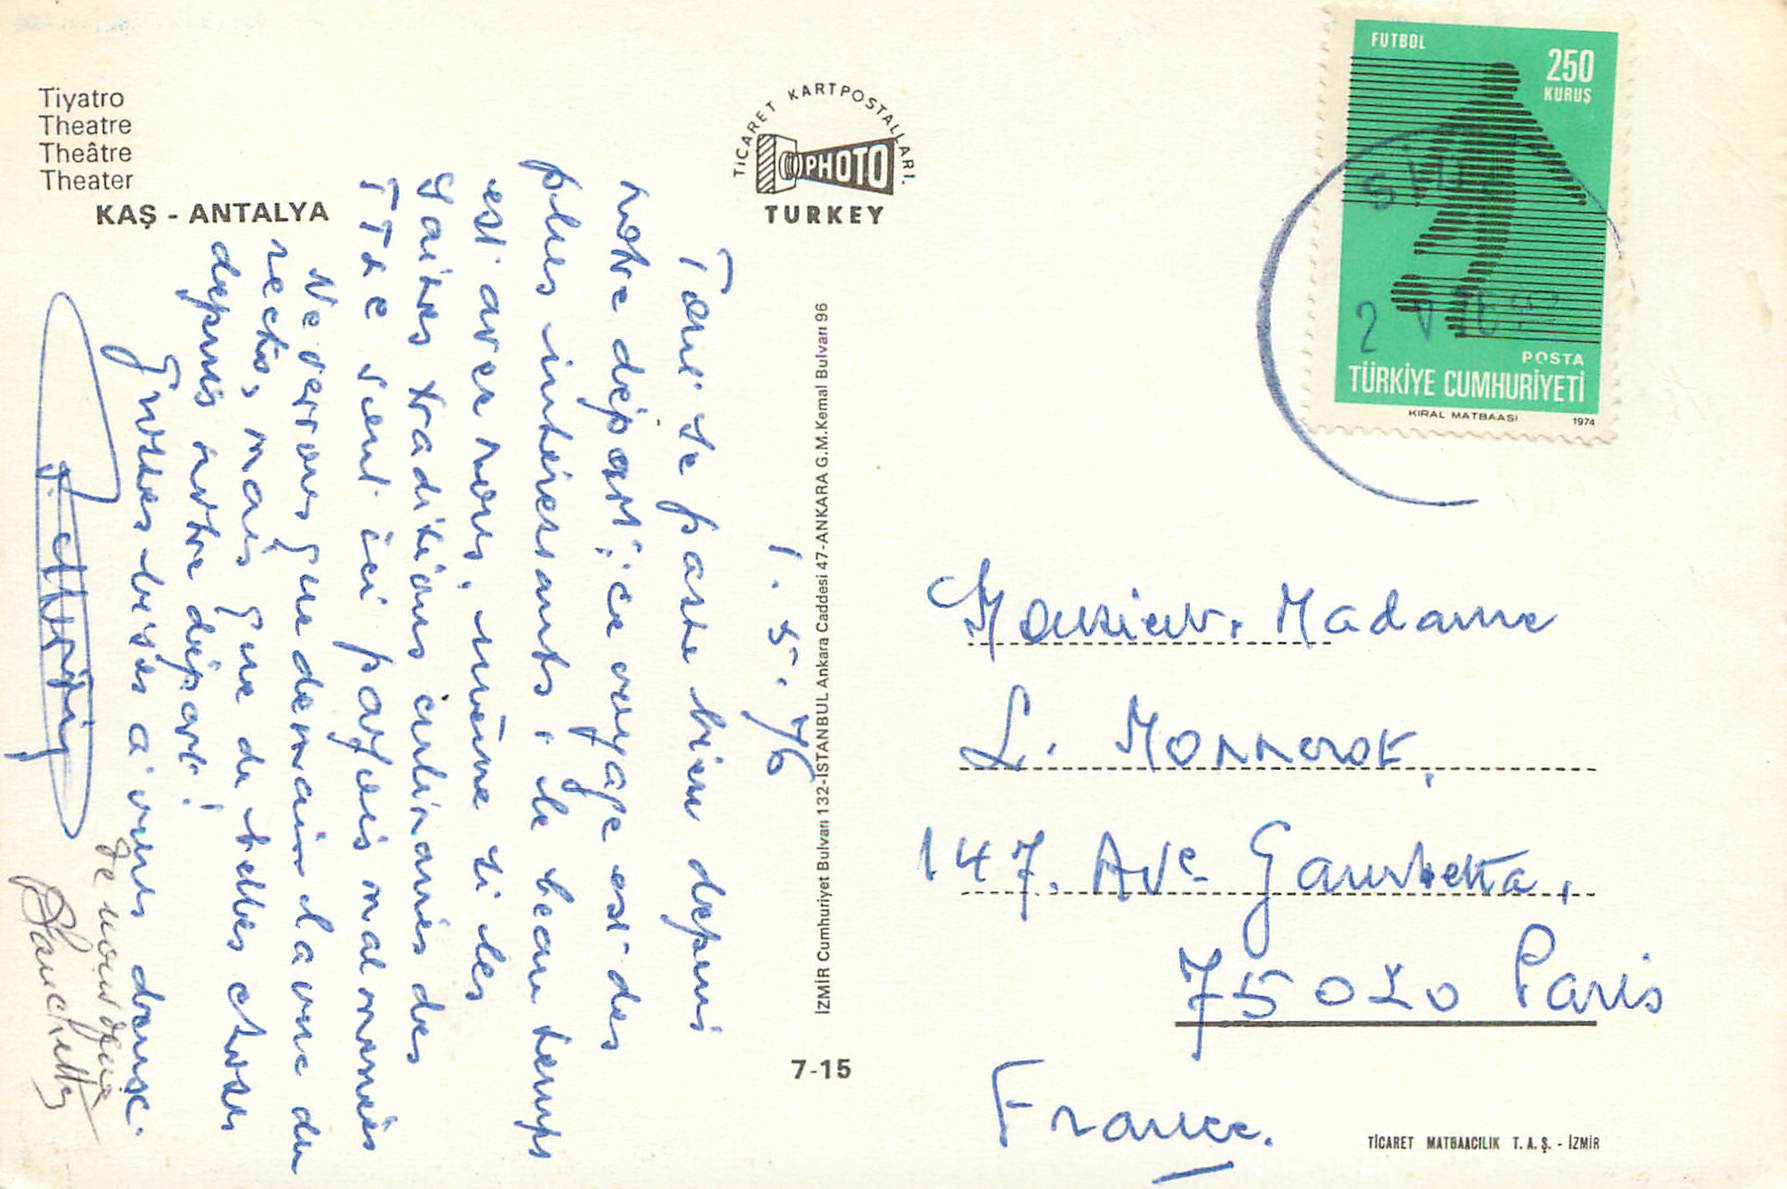 Tiyatro
Theatre
Theâtre
Theater
KAŞ - ANTALYA
TİCARET KARTPOSTALLARI.
PHOTO
TURKEY
FUTBOL
250
KURUŞ
POSTA
TÜRKİYE CUMHURİYETİ
KIRAL MATBAASI
1974
1.5.76
Tout se passe bien depuis
notre départ : ce voyage est des
plus intéressants ; le beau temps
est avec nous, même si les
saintes traditions culinaires des
TTE sont ici parfois malmenées
Ne verrons que demain la vue du
recto, mais que de belles choses
depuis notre départ !
Grosses bises à vous deux.
Je vous
İZMİR Cumhuriyet Bulvarı 132-İSTANBUL Ankara Caddesi 47-ANKARA G.M.Kemal Bulvarı 96
7-15
Monsieur. Madame
L. Monnerot,
147. Ave Gambetta,
75020 Paris
France.
TİCARET MATBAACILIK T.A.Ş. - İZMİR